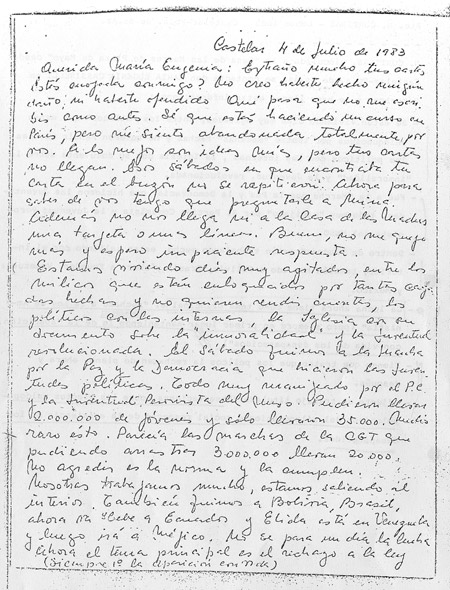 Castelar 4 de Julio de 1983
Querida María Eugenia: Extraño mucho tus cartas
Estás enojada conmigo? No creo haberte hecho ningún
daño, ni haberte ofendido Qué pasa que no me escri
bís como antes. Sé que estás haciendo un curso en
París, pero me siento abandonada totalmente por
vos. A lo mejor son ideas mías, pero tus cartas
no llegan. Esos sábados en que encontraba tu
carta en el buzón no se repitieron. Ahora para
saber de vos tengo que preguntarle a
Además no nos llega ni a la Casa de las Madres
una tarjeta o unas líneas. Bueno, no me quejo
más y espero impaciente respuesta.
Estamos viviendo días muy agitados, entre los
milicos que están enloquecidos por tantas
das hechas y no quieren rendir cuentas, los
políticos con las internas, la Iglesia con su
documento sobre la "inmoralidad" y la Juventud
revolucionada. El Sábado fuimos a la Marcha
por la Paz y la Democracia que hicieron las Juven
tudes políticas. Todo muy manijeado por el P.C
y la Juventud Peronista del Pudieron llevar
2.000.000 de jóvenes y sólo llevaron 35.000. Mucho
raro esto. Parecía las marchas de la CGT que
pudiendo arrastrar 3.000.000 llevan 20.000.
No agredir es la norma y la cumplen.
Nosotras trabajamos mucho, estamos saliendo al
interior. También fuimos a Bolivia, Brasil,
ahora va Hebe a Ecuador y Elida está en Venezuela
y luego irá a Méjico. No se para un día la lucha
Ahora el tema principal es el rechazo a la ley
(Diciembre 1º la desaparición)